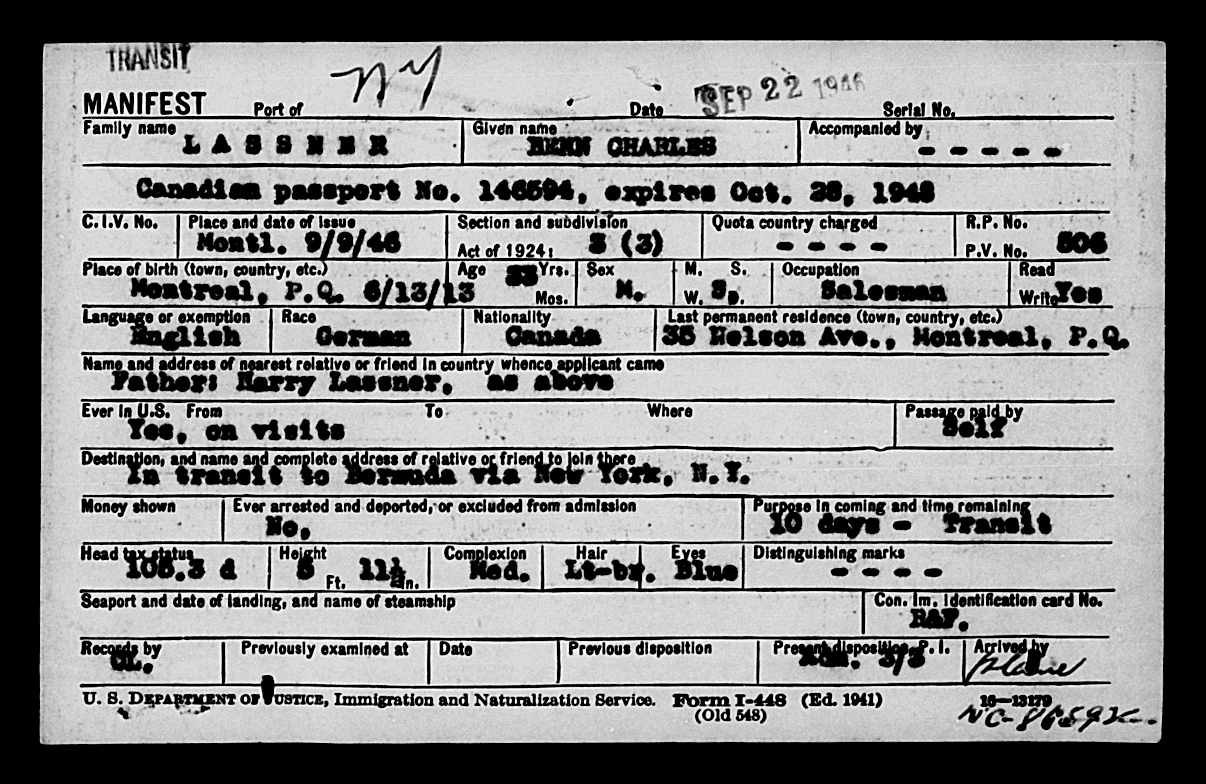 TRANSIT
MANIFEST Port of NY Date SEP 22 1946 Serial No.
Family name Given name Accompanied by
LASSNER CHARLES - - - - -
Canadian passport No. 146594, expires Oct. 28, 1948
C.I.V. No. Place and date of issue Section and subdivision Quota country charged R.P. No.
Montl. 9/9/46 Act of 1924: 3 (3) - - - - P.V. No. 506
Place of birth (town, country, etc.) Age 33 Yrs. Sex M. S. Occupation Read
Montreal, P.Q. 6/13/13 Mos. M. W. S D. Salesman Write Yes
Language or exemption Race Nationality Last permanent residence (town, country, etc.)
English German Canada 35 Nelson Ave., Montreal, P.Q.
Name and address of nearest relative or friend in country whence applicant came
Father: Harry Lassner, as above
Ever in U.S. From To Where Passage paid by
Yes, on visits Self
Destination, and name and complete address of relative or friend to join there
In transit to Bermuda via New York, N.Y.
Money shown Ever arrested and deported, or excluded from admission Purpose in coming and time remaining
No, 10 days - Transit
Head tax status Height Complexion Hair Eyes Distinguishing marks
105.3 d 5 Ft. 11½ In. Med. Lt-br. Blue - - - -
Seaport and date of landing, and name of steamship Con. Im. Identification card No.
Records by Previously examined at Date Previous disposition Present disposition P.I. Arrived by
CL. Adm. 3/3 plane
U. S. DEPARTMENT OF JUSTICE, Immigration and Naturalization Service. Form I-448 (Ed. 1941) 16—13179
(Old 548)